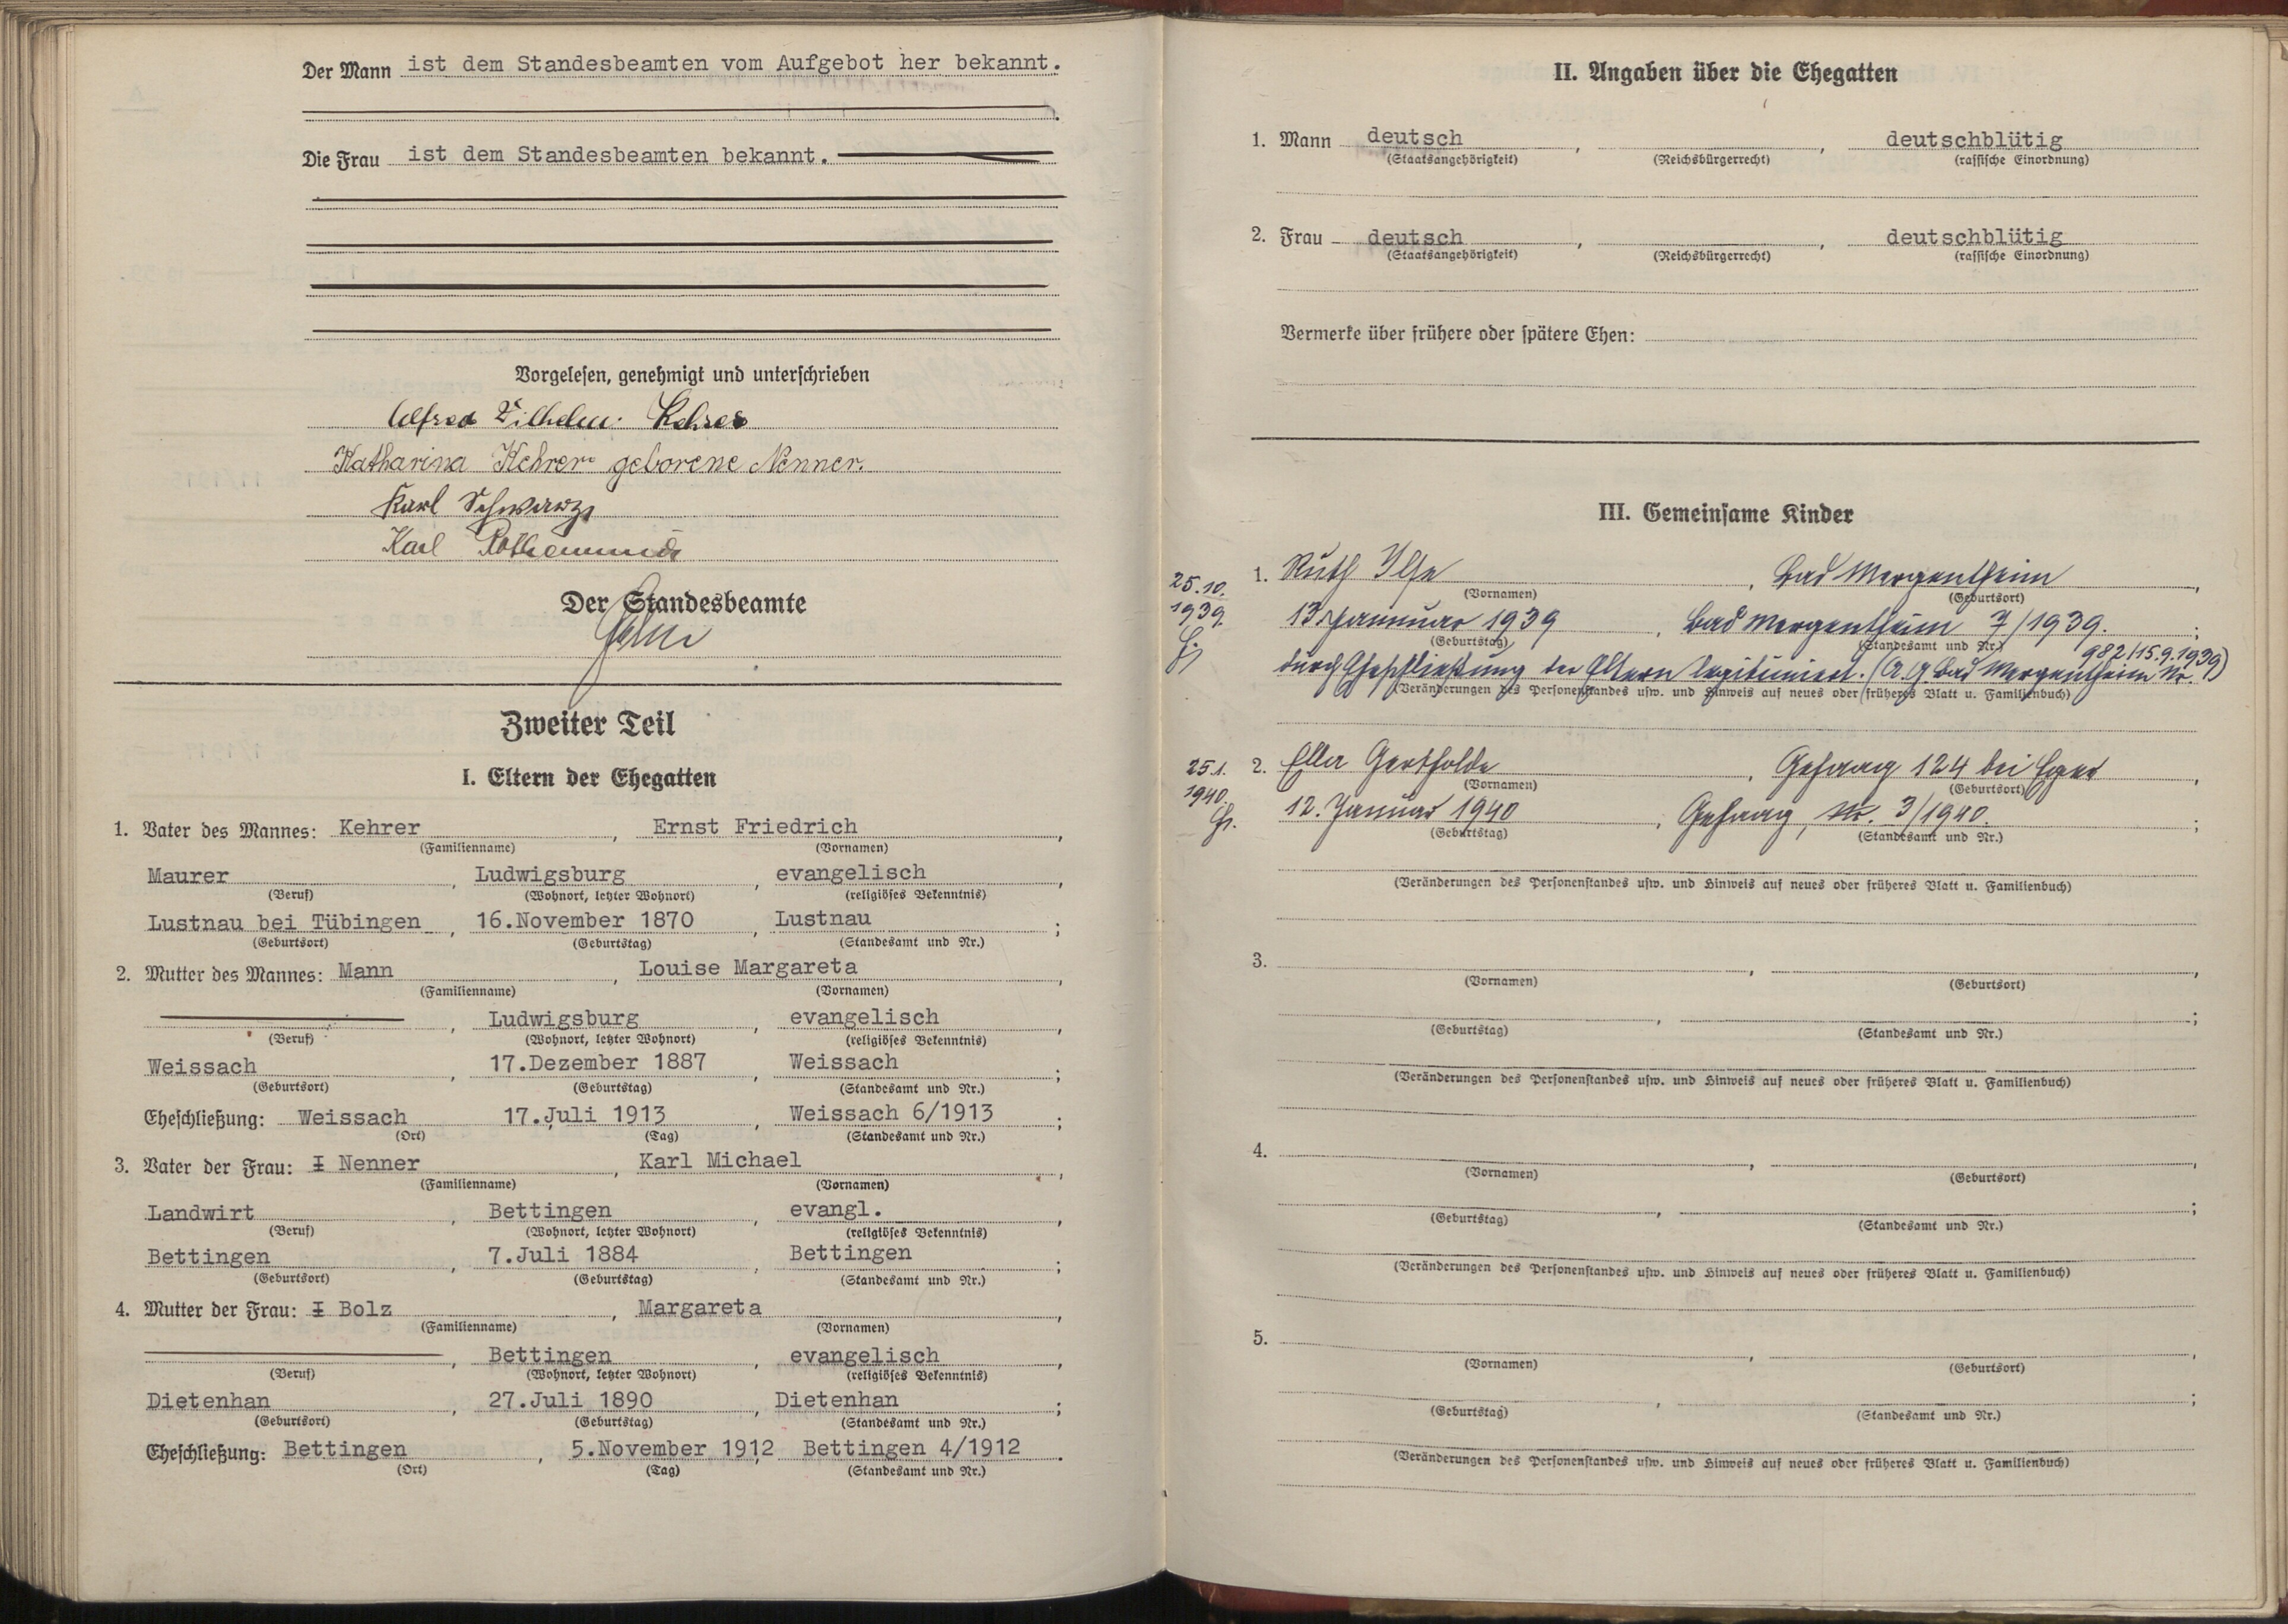 Der Mann ist dem Standesbeamten vom Aufgebot her bekannt.
Die Frau ist dem Standesbeamten bekannt.
Vorgelesen, genehmigt und unterschrieben
Alfred Wilhelm Kehrer
Katharina Kehrer geborene Nenner.
Karl Schwarz
Karl Rothemund
Der Standesbeamte
Zweiter Teil
I. Eltern der Ehegatten
1. Vater des Mannes: Kehrer, Ernst Friedrich,
(Familienname) (Vornamen)
Maurer, Ludwigsburg, evangelisch,
(Beruf) (Wohnort, letzter Wohnort) (religiöses Bekenntnis)
Lustnau bei Tübingen, 16.November 1870, Lustnau;
(Geburtsort) (Geburtstag) (Standesamt und Nr.)
2. Mutter des Mannes: Mann, Louise Margareta,
(Familienname) (Vornamen)
, Ludwigsburg, evangelisch,
(Beruf) (Wohnort, letzter Wohnort) (religiöses Bekenntnis)
Weissach, 17.Dezember 1887, Weissach;
(Geburtsort) (Geburtstag) (Standesamt und Nr.)
Eheschließung: Weissach, 17.Juli 1913, Weissach 6/1913;
(Ort) (Tag) (Standesamt und Nr.)
3. Vater der Frau: I Nenner, Karl Michael,
(Familienname) (Vornamen)
Landwirt, Bettingen, evangl.,
(Beruf) (Wohnort, letzter Wohnort) (religiöses Bekenntnis)
Bettingen, 7.Juli 1884, Bettingen;
(Geburtsort) (Geburtstag) (Standesamt und Nr.)
4. Mutter der Frau: I Bolz, Margareta,
(Familienname) (Vornamen)
, Bettingen, evangelisch,
(Beruf) (Wohnort, letzter Wohnort) (religiöses Bekenntnis)
Dietenhan, 27.Juli 1890, Dietenhan;
(Geburtsort) (Geburtstag) (Standesamt und Nr.)
Eheschließung: Bettingen, 5.November 1912, Bettingen 4/1912.
(Ort) (Tag) (Standesamt und Nr.)
II. Angaben über die Ehegatten
1. Mann deutsch, , deutschblütig
(Staatsangehörigkeit) (Reichsbürgerrecht) (rassische Einordnung)
2. Frau deutsch, , deutschblütig
(Staatsangehörigkeit) (Reichsbürgerrecht) (rassische Einordnung)
Vermerke über frühere oder spätere Ehen:
III. Gemeinsame Kinder
25.10.
1939.
1. Ruth Ilse, Bad Mergentheim,
(Vornamen) (Geburtsort)
13. Januar 1939, Bad Mergentheim 7/1939.;
(Geburtstag) (Standesamt und Nr.)
982/15.9.1939)
durch Eheschließung der Eltern legitimiert. (A.G. Bad Mergentheim Nr.
(Veränderungen des Personenstandes usw. und Hinweis auf neues oder früheres Blatt u. Familienbuch)
25.1.
1940.
2. Ella Gertholde, Gehaag 124 bei Eger,
(Vornamen) (Geburtsort)
12. Januar 1940, Gehaag, Nr. 3/1940.;
(Geburtstag) (Standesamt und Nr.)
(Veränderungen des Personenstandes usw. und Hinweis auf neues oder früheres Blatt u. Familienbuch)
3. , ,
(Vornamen) (Geburtsort)
, ;
(Geburtstag) (Standesamt und Nr.)
(Veränderungen des Personenstandes usw. und Hinweis auf neues oder früheres Blatt u. Familienbuch)
4. , ,
(Vornamen) (Geburtsort)
, ;
(Geburtstag) (Standesamt und Nr.)
(Veränderungen des Personenstandes usw. und Hinweis auf neues oder früheres Blatt u. Familienbuch)
5. , ,
(Vornamen) (Geburtsort)
, ;
(Geburtstag) (Standesamt und Nr.)
(Veränderungen des Personenstandes usw. und Hinweis auf neues oder früheres Blatt u. Familienbuch)